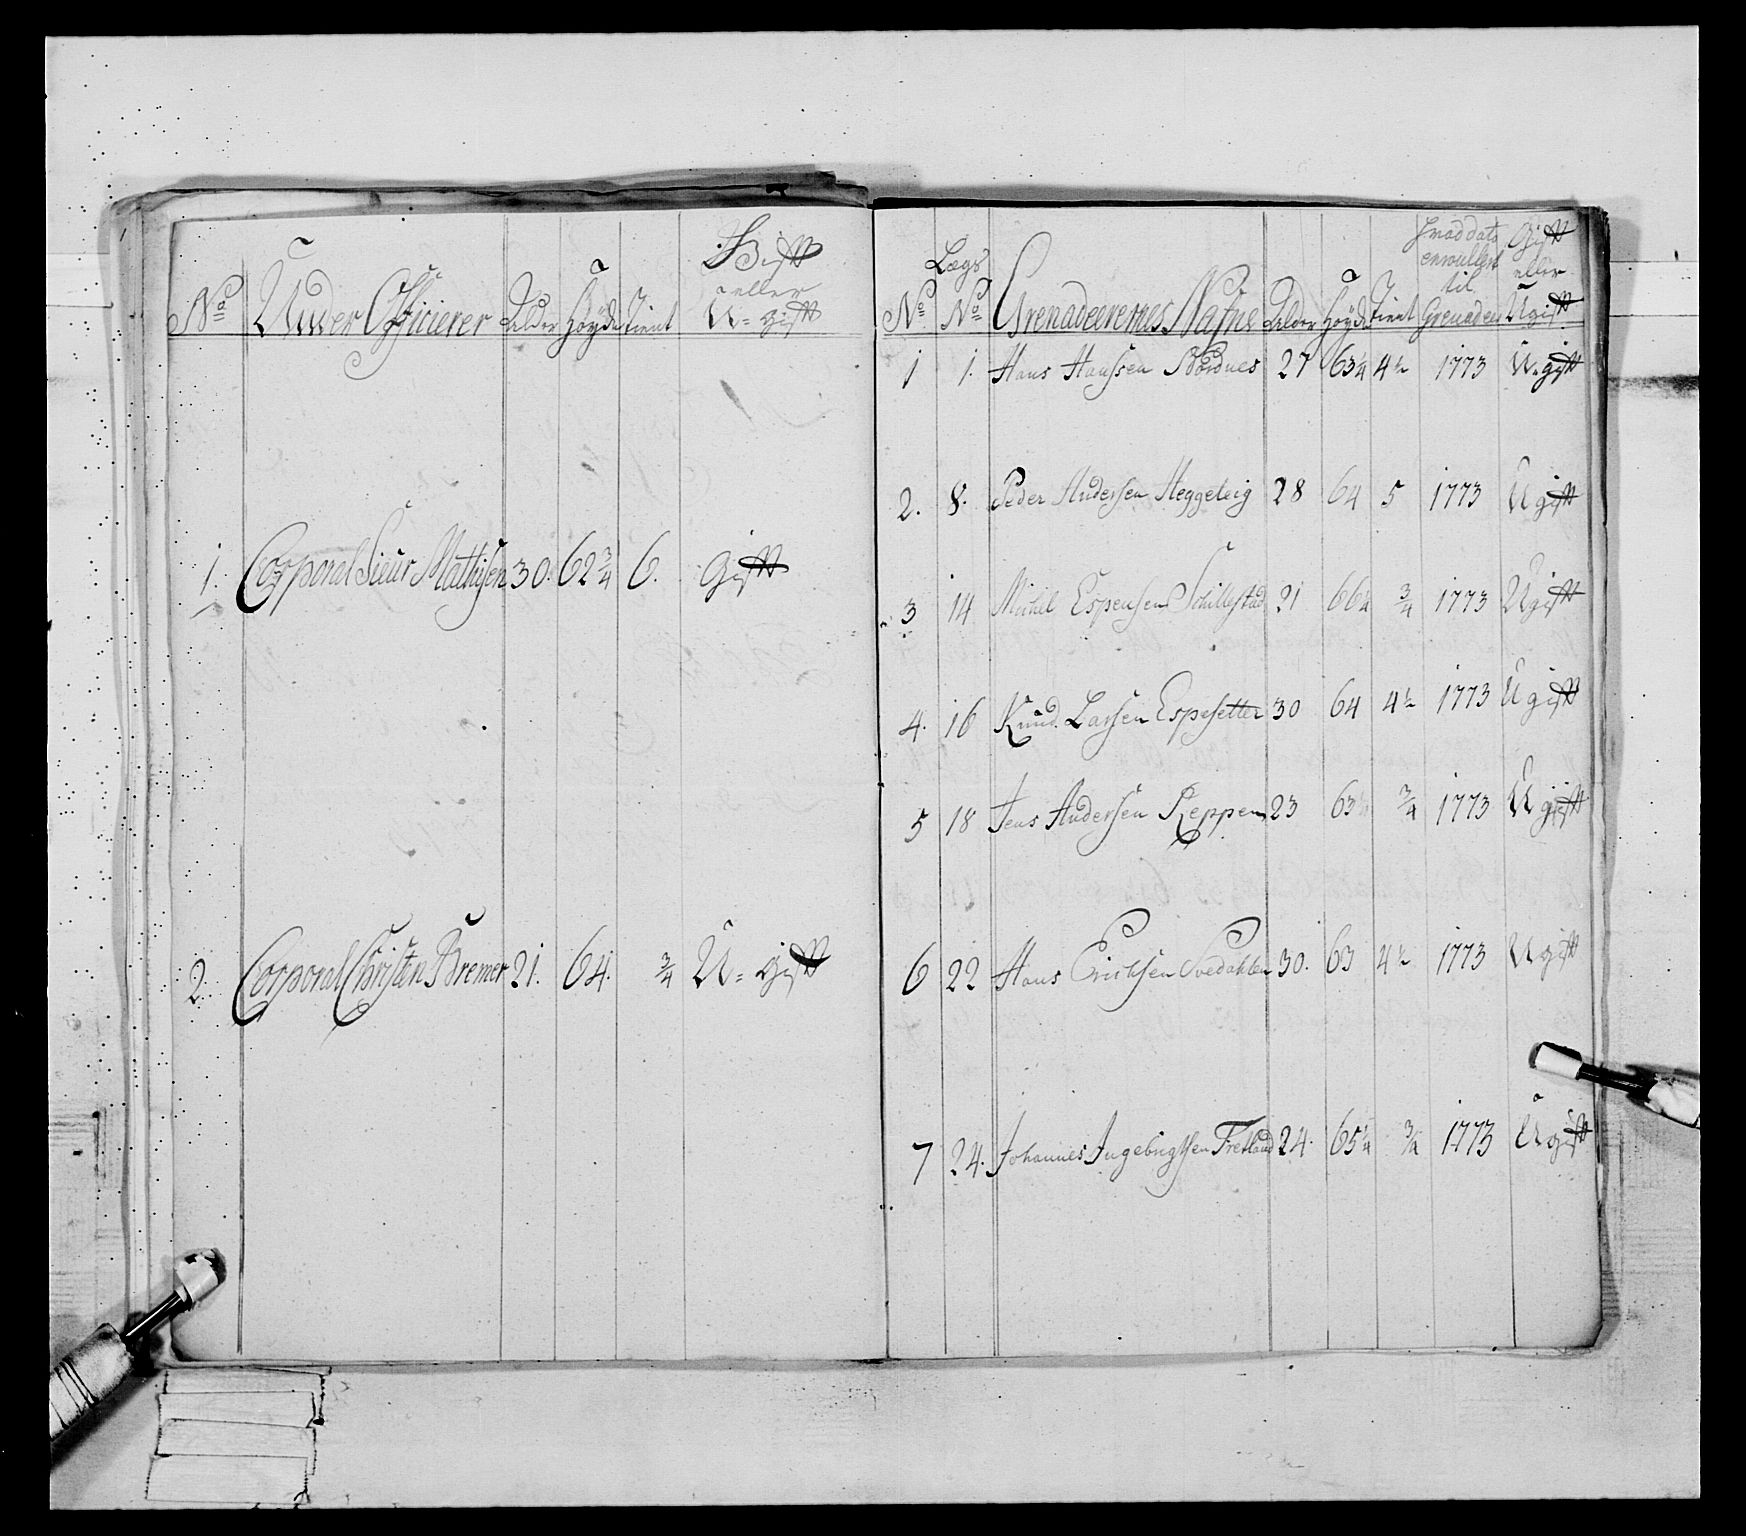 No Under Officierer Alder Høyde Tient Gift eller U=gift
1. Corporal Siur Mathisen 30. 62 3/4 6. Gift
2. Corporal Christen Bremer 21. 64. 3/4 U=gift
No Lægs No Grenadeerernes Nafne Alder Høyde Tient Hvad dato enroullert til Grenadeer Gift eller Ugift
1 1. Hans Hanssen Nordnes 27 63 1/4 4 1/2 1773 U=gift
2. 8. Peder Andersen Heggeleig 28 64 5 1773 Ugift
3 14 Michel Espensen Schillestad 21 66 1/4 3/4 1773 Ugift
4. 16 Knud Larsen Espesetter 30 64 4 1/2 1773 Ugift
5 18 Jens Andersen Reppen 23 63 1/2 3/4 1773 Ugift
6 22 Hans Erichsen Svedahlen 30. 63 4 1/2 1773 Ugift
7 24. Johannes Ingebrigtsen Fretland 24. 65 1/4 3/4 1773 Ugift